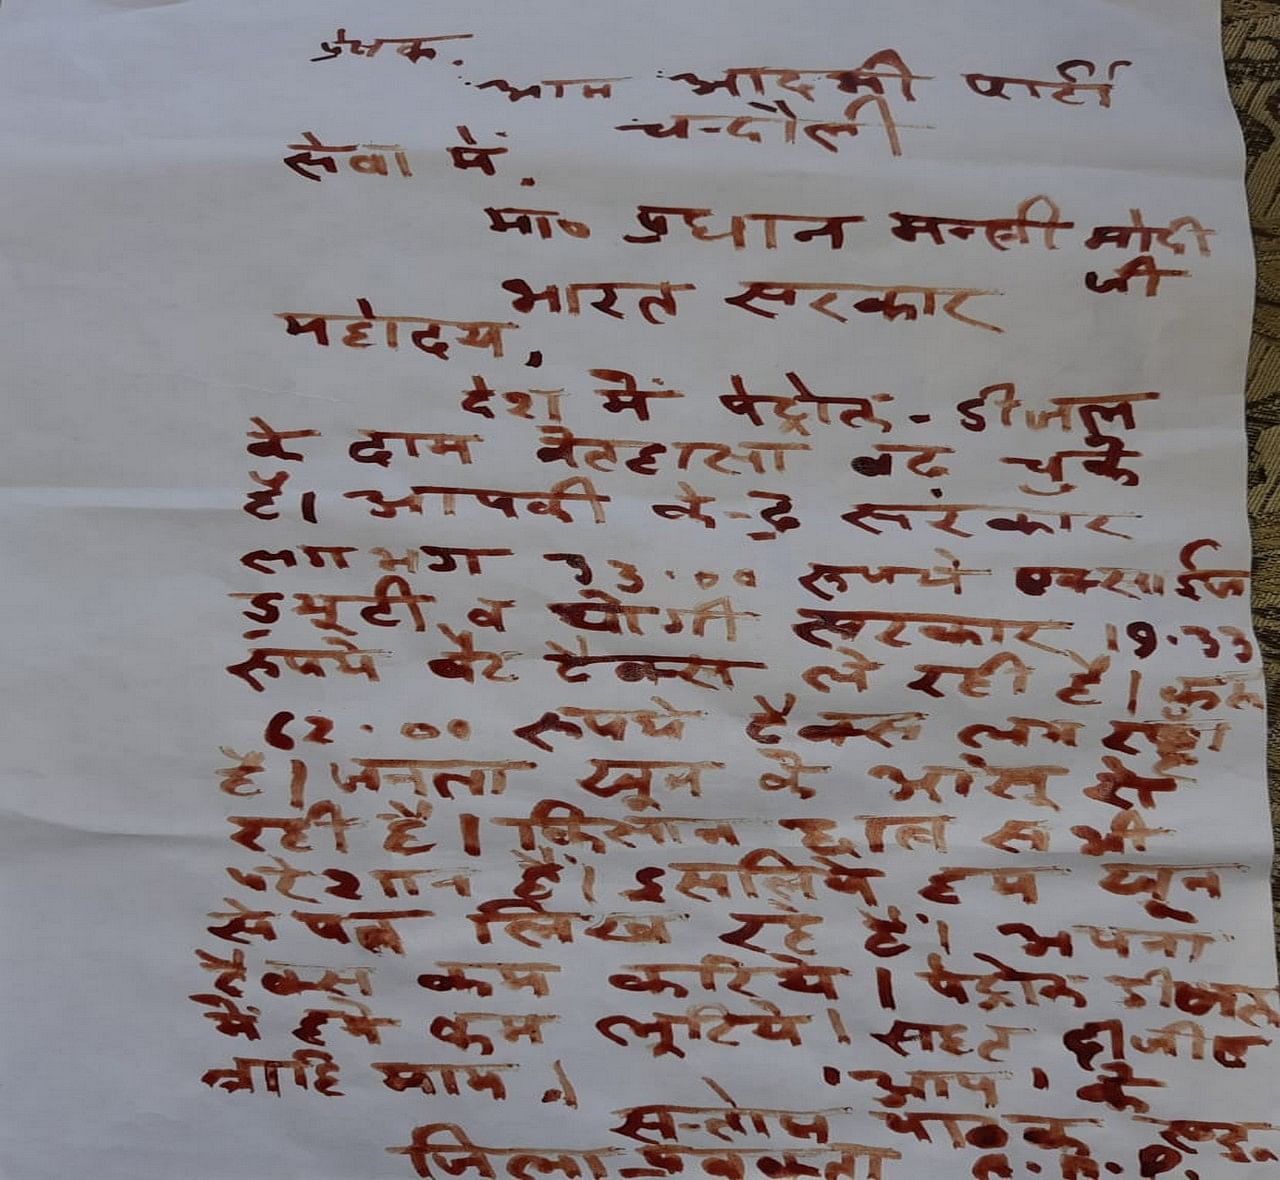 प्रेषक.
आम आदमी पार्टी
चन्दौली
सेवा में.
मा० प्रधान मन्त्री मोदी
जी
भारत सरकार
महोदय.
देश में पेट्रोल - डीजल
के दाम बेतहासा बढ़ चुके
हैं। आपकी केन्द्र सरकार
लगभग 33.00 रूपये एक्साईज
डयूटी व योगी सरकार 19.33
रूपये वैट टैक्स ले रही है। कुल
62.00 रूपये टैक्स लग रहा
है। जनता खून के आंसू रो
रही है। किसान हाल सभी
परेशान हैं। इसलिये हम खून
से पत्र लिख रहे हैं। अपना
टैक्स कम करिये। पेट्रोल डीजल
में हमे कम लूटिये।
त्राहि माम। 'आप' के
सन्तोष पाठक
जिला प्रवक्ता